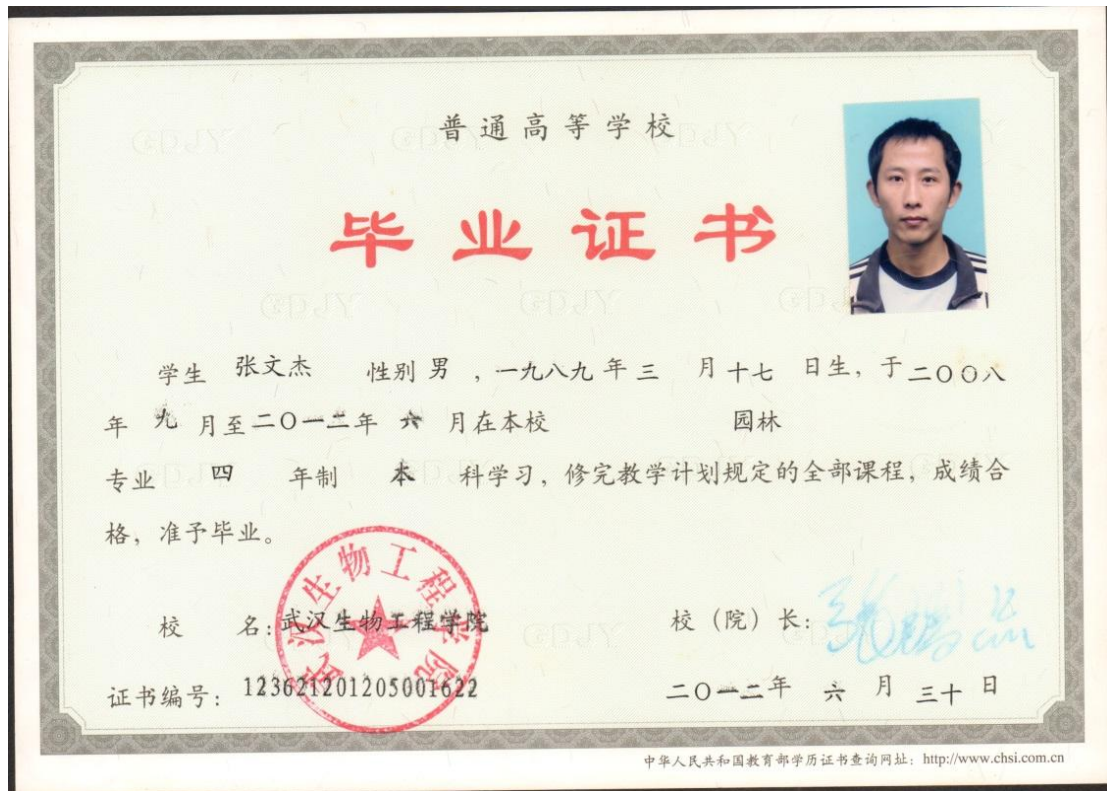 普通高等学校
毕业证书
学生 张文杰 性别 男 ，一九八九 年 三 月 十七 日生，于 二〇〇八
年 九 月至 二〇一二 年 六 月在本校 园林
专业 四 年制 本 科学习，修完教学计划规定的全部课程，成绩合
格，准予毕业。
武汉生物工程学院
校 名：武汉生物工程学院 校（院）长：
证书编号：123621201205001622 二〇一二年 六 月 三十 日
中华人民共和国教育部学历证书查询网址：http://www.chsi.com.cn